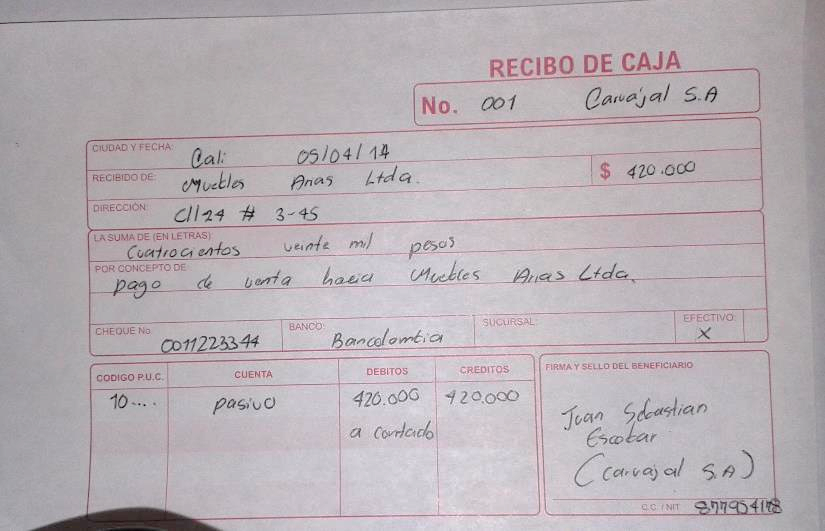 RECIBO DE CAJA
No. 001 Carvajal S.A
CIUDAD Y FECHA: Cali 05/04/14
RECIBIDO DE: Muebles Arias Ltda. $ 420.000
DIRECCIÓN: Cll 24 # 3-45
LA SUMA DE (EN LETRAS): Cuatrocientos veinte mil pesos
POR CONCEPTO DE
pago de venta hacia Muebles Arias Ltda.
CHEQUE No. 0011223344 BANCO: Bancolombia SUCURSAL: EFECTIVO: X
CODIGO P.U.C. CUENTA DEBITOS CREDITOS FIRMA Y SELLO DEL BENEFICIARIO
10..... pasivo 420.000 420.000
a contado
Juan Sebastian
Escobar
(carvajal S.A)
C.C. / NIT